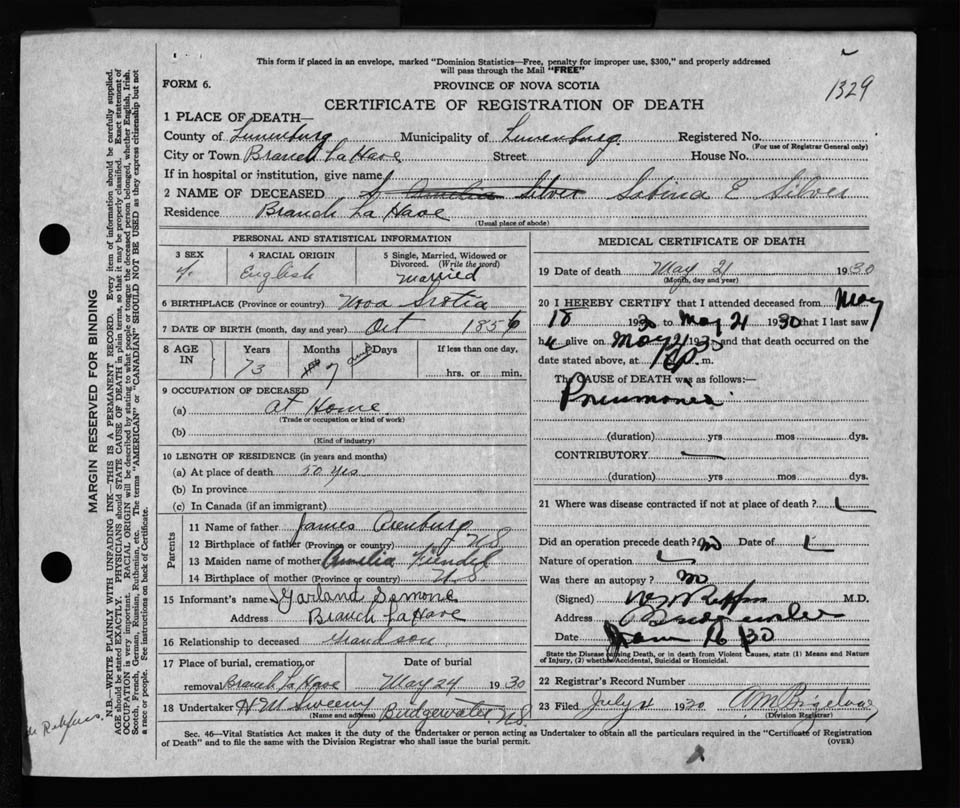 This form if placed in an envelope, marked "Dominion Statistics—Free, penalty for improper use, $300," and properly addressed
will pass through the Mail "FREE"
1329
FORM 6.
PROVINCE OF NOVA SCOTIA
CERTIFICATE OF REGISTRATION OF DEATH
1 PLACE OF DEATH—
County of Lunenburg Municipality of Lunenburg Registered No.
(For use of Registrar General only)
City or Town Branch LaHave Street House No.
If in hospital or institution, give name
2 NAME OF DECEASED Amelia Silver Sabina E Silver
Residence Branch LaHave
(Usual place of abode)
PERSONAL AND STATISTICAL INFORMATION
3 SEX
4 RACIAL ORIGIN
5 Single, Married, Widowed or Divorced. (Write the word)
f. English Married
6 BIRTHPLACE (Province or country) Nova Scotia
7 DATE OF BIRTH (month, day and year) Oct 1856
8 AGE IN Years Months Days If less than one day,
73 7 hrs. or min.
9 OCCUPATION OF DECEASED
(a) at Home
(Trade or occupation or kind of work)
(b)
(Kind of industry)
10 LENGTH OF RESIDENCE (in years and months)
(a) At place of death 50 yrs
(b) In province
(c) In Canada (if an immigrant)
Parents
11 Name of father James
12 Birthplace of father (Province or country) N S
13 Maiden name of mother Amelia
14 Birthplace of mother (Province or country) N S
15 Informant's name Garland Semone
Address Branch LaHave
16 Relationship to deceased Grandson
17 Place of burial, cremation, or removal Branch LaHave
Date of burial May 24 1930
18 Undertaker H M Sweeny Bridgewater N.S.
(Name and address)
MEDICAL CERTIFICATE OF DEATH
19 Date of death May 21 1930
(Month, day and year)
20 I HEREBY CERTIFY that I attended deceased from May
18 1930 to May 21 1930 that I last saw
h alive on May 21 1930 and that death occurred on the
date stated above, at m.
The CAUSE OF DEATH was as follows:—
Pneumonia
(duration) yrs mos dys.
CONTRIBUTORY
(duration) yrs mos dys.
21 Where was disease contracted if not at place of death?
Did an operation precede death? no Date of
Nature of operation
Was there an autopsy? no
(Signed) M.D.
Address Bridgewater
Date 30
State the Disease causing Death, or in death from Violent Causes, state (1) Means and Nature
of Injury, (2) whether Accidental, Suicidal or Homicidal.
22 Registrar's Record Number
23 Filed July 4 1930
(Division Registrar)
Sec. 46—Vital Statistics Act makes it the duty of the Undertaker or person acting as Undertaker to obtain all the particulars required in the "Certificate of Registration
of Death" and to file the same with the Division Registrar who shall issue the burial permit.
(OVER)
MARGIN RESERVED FOR BINDING
N.B.—WRITE PLAINLY WITH UNFADING INK—THIS IS A PERMANENT RECORD. Every item of information should be carefully supplied.
AGE should be stated EXACTLY. PHYSICIANS should STATE CAUSE OF DEATH in plain terms, so that it may be properly classified. Exact statement of
OCCUPATION is very important. RACIAL ORIGIN will be described by stating to what people or tongue the deceased person belonged, whether English, Irish,
Scotch, French, German, Russian, Ruthenian, etc. The terms "AMERICAN" or "CANADIAN" SHOULD NOT BE USED as they express citizenship but not
a race or people. See instructions on back of Certificate.